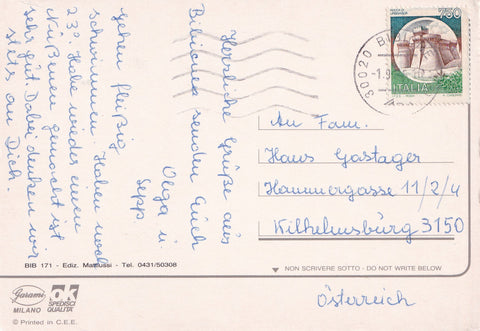 Herrliche Grüße aus
Bibione senden Euch
Olga u.
Sepp.
Gehen fleißig
schwimmen. Haben noch
23°. Habe wieder einen
Nußernen gemacht ist
sehr gut. Dabei denken wir
stets an Dich.
750
ITALIA
30020
-1.9
An Fam.
Hans Gastager
Hammergasse 11/2/4
Wilhelmsburg 3150
BIB 171 - Ediz. Matiussi - Tel. 0431/50308
NON SCRIVERE SOTTO - DO NOT WRITE BELOW
Österreich
Garami
MILANO
OK
SPEDISCI
QUALITA'
© Printed in C.E.E.